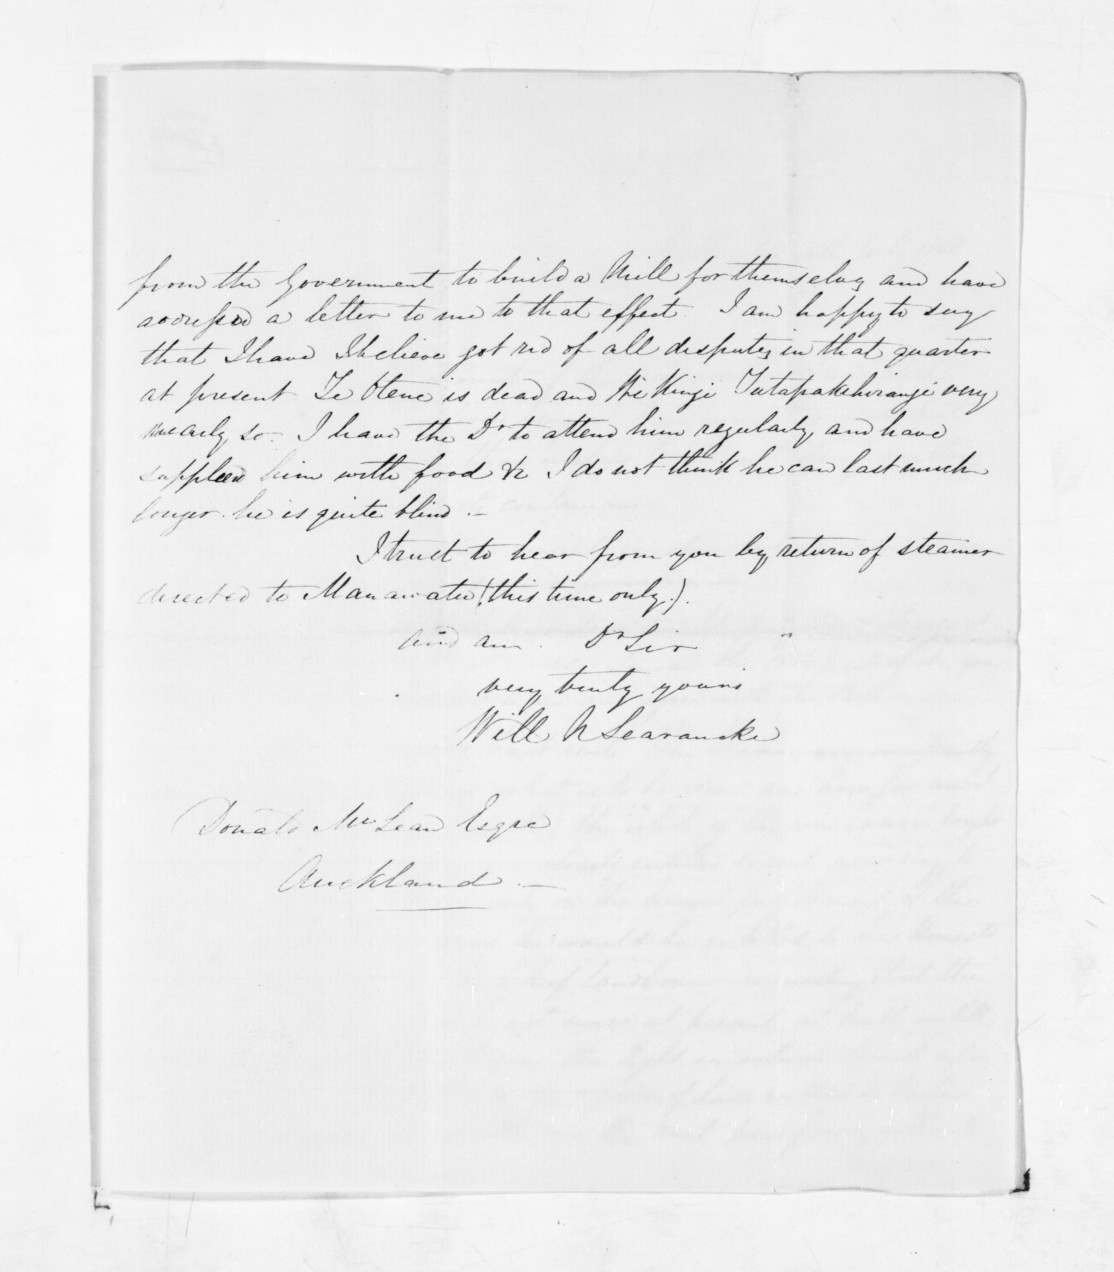 from the Government to build a Mill for themselves and have
addressed a letter to me to that effect. I am happy to say
that I have I believe got rid of all disputes in that quarter
at present Te Otene is dead and Wi Kingi Tutapakihirangi very
nearly so. I have the Dr to attend him regularly and have
supplied him with food &c I do not think he can last much
longer. he is quite blind. —
I trust to hear from you by return of steamer
directed to Manawatu (this time only).
and am. Dr Sir
very truly yours
Will N Searancke
Donald McLean Esqre
Auckland —